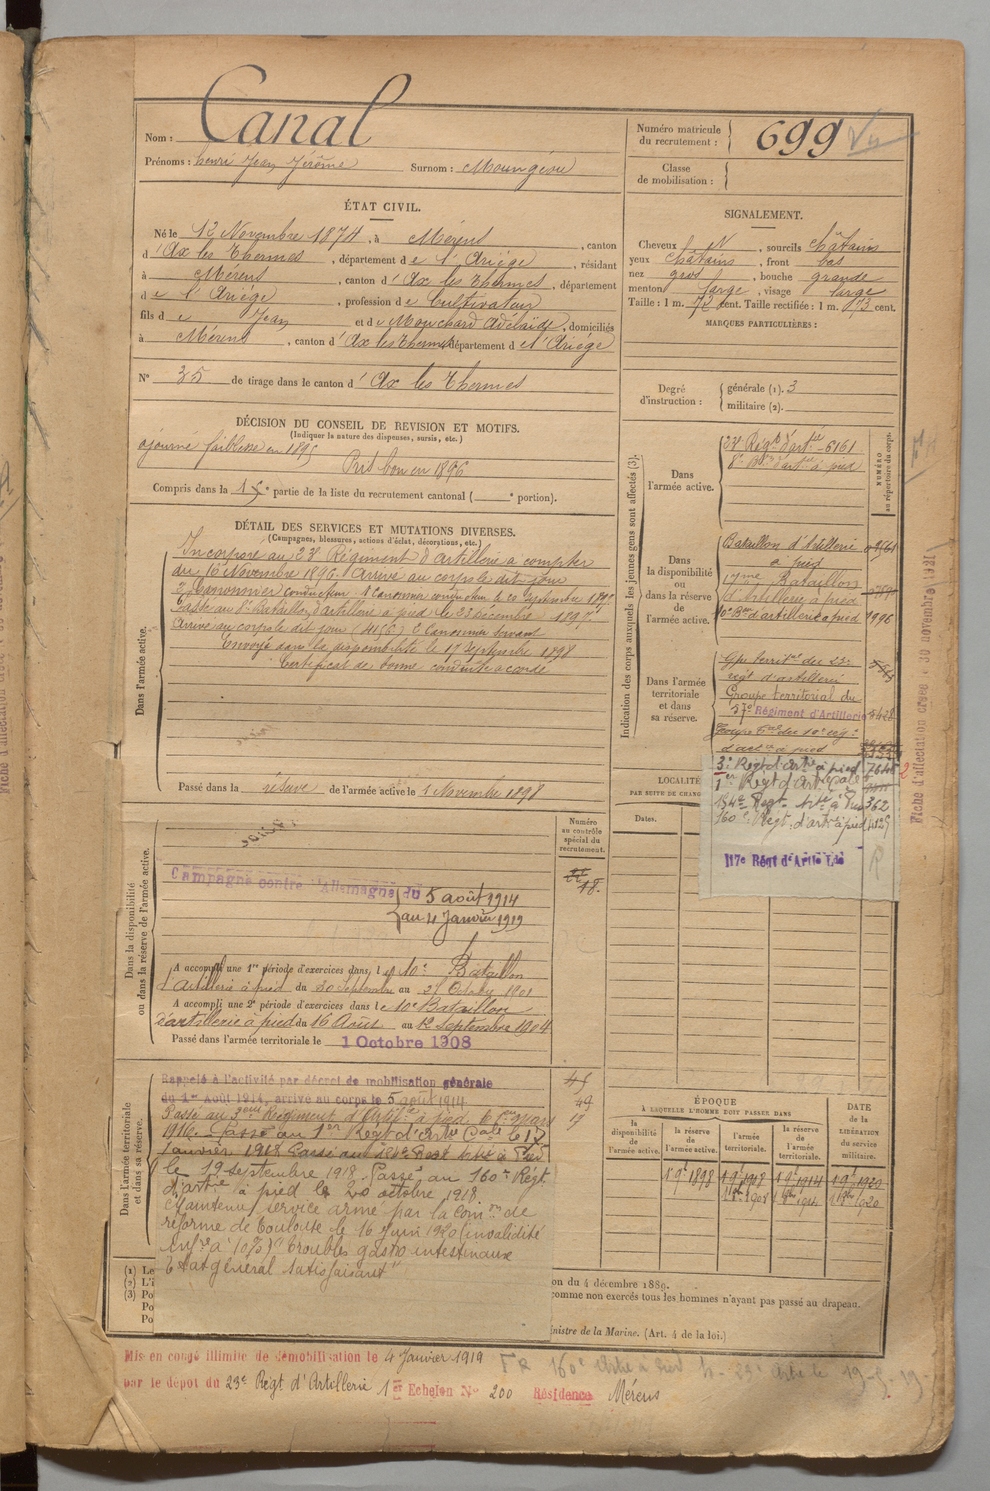 Nom : Canal
Prénoms : henri Jean Jérôme Surnom :
ÉTAT CIVIL.
Né le 12 Novembre 1874, à Mérens, canton
d'Ax les Thermes, département de l'Ariège, résidant
à Mérens, canton d'Ax les Thermes, département
de l'Ariège, profession de Cultivateur
fils de Jean et de Mouchard Adélaïde, domiciliés
à Mérens, canton d'Ax les Thermes département de l'Ariège
N° 35 de tirage dans le canton d'Ax les Thermes
DÉCISION DU CONSEIL DE REVISION ET MOTIFS.
(Indiquer la nature des dispenses, sursis, etc.)
ajourné faiblesse en 1895
Pris bon en 1896
Compris dans la 1e partie de la liste du recrutement cantonal ( e portion).
DÉTAIL DES SERVICES ET MUTATIONS DIVERSES.
(Campagnes, blessures, actions d'éclat, décorations, etc.)
Dans l'armée active.
Incorporé au 23e Régiment d'Artillerie à compter
du 16 Novembre 1896. Arrivé au corps le dit jour
2e Canonnier conducteur. 1e Canonnier conducteur le 20 septembre 1897
Passé au 8e Bataillon d'artillerie à pied le 23 Décembre 1897.
Arrivé au corps le dit jour (4156) 2e Canonnier servant
Envoyé dans la disponibilité le 17 Septembre 1898
Certificat de bonne conduite accordé
Passé dans la réserve de l'armée active le 1 Novembre 1898
Dans la disponibilité
ou dans la réserve de l'armée active.
Numéro
au contrôle
spécial du
recrutement.
18.
Campagne contre l'Allemagne du 5 août 1914
au 4 Janvier 1919
A accompli une 1re période d'exercices dans le 10e Bataillon
d'artillerie à pied du 30 Septembre au 27 Octobre 1901
A accompli une 2e période d'exercices dans le 10e Bataillon
d'artillerie à pied du 16 Août au 12 Septembre 1904
Passé dans l'armée territoriale le 1 Octobre 1908
Dans l'armée territoriale
et dans sa réserve.
Rappelé à l'activité par décret de mobilisation générale
du 1er Août 1914, arrivé au corps le 5 août 1914
Passé au 3eme Régiment d'Artie à pied le 1er mars
1916. Passé au 1er Régt d'Artie Cale le 17
Janvier 1918 Passé au 154e Regt Artie à Pied
le 19 septembre 1918. Passé au 160e Régt
d'artie à pied le 20 octobre 1918
Maintenu service armé par la Comon de
réforme de Toulouse le 16 Juin 1920 (invalidité
infre à 10%) "troubles gastro intestinaux
Etat général satisfaisant"
(1) Le
(2) L'i
(3) Po
Po
Po
Mis en congé illimité de démobilisation le 4 Janvier 1919
par le dépôt du 23e Régt d'Artillerie 1er Echelon N° 200 Résidence Mérens
Numéro matricule
du recrutement : 699 Vu
Classe
de mobilisation :
SIGNALEMENT.
Cheveux N, sourcils châtains
yeux châtains, front bas
nez gros, bouche grande
menton large, visage large
Taille : 1 m. 72 cent. Taille rectifiée : 1 m. 73 cent.
MARQUES PARTICULIÈRES :
Degré
d'instruction :
générale (1). 3
militaire (2).
Indication des corps auxquels les jeunes gens sont affectés (3).
NUMÉRO
au répertoire du corps.
Dans
l'armée active.
23e Régt d'artie 6161
8e Bon d'artie à pied
Dans
la disponibilité
ou
dans la réserve
de
l'armée active.
Bataillon d'Artillerie
à pied
17eme Bataillon
d'Artillerie à pied
10e Bon d'artillerie à pied 1996
Dans l'armée
territoriale
et dans
sa réserve.
Gpe territal du 23e
régt d'artillerie
Groupe territorial du
37e Régiment d'Artillerie
Groupe tal du 10e rég.
d'artie à pied
3e Régt d'artie à pied
1er Regt d'Artie Cale
154e Regt Artie à Pied 362
160e Régt. d'artie à pied
117e Régt d'Artie Lde
R
Fiche d'affectation créée 30 novembre 1921
LOCALITÉ
PAR SUITE DE CHANG
Dates.
ÉPOQUE
À LAQUELLE L'HOMME DOIT PASSER DANS
la
disponibilité
de
l'armée active.
la réserve
de
l'armée active.
l'armée
territoriale.
la réserve
de
l'armée
territoriale.
DATE
de la
LIBÉRATION
du service
militaire.
1 9e 1898
1 9e 1908
1 9e 1914
1 9e 1920
on du 4 décembre 1889.
comme non exercés tous les hommes n'ayant pas passé au drapeau.
inistre de la Marine. (Art. 4 de la loi.)